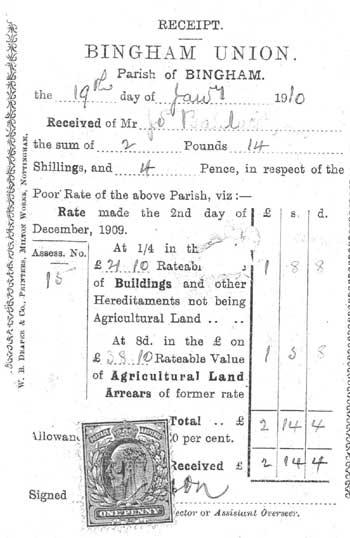 RECEIPT.
BINGHAM UNION.
Parish of BINGHAM.
the 19th day of Jany 1910
Received of Mr Jo
the sum of 2 Pounds 14
Shillings, and 4 Pence, in respect of the
Poor Rate of the above Parish, viz :—
Rate made the 2nd day of £ s. d.
December, 1909.
Assess. No.
15
At 1/4 in th
£ 21 10 Rateabl 1 8 8
of Buildings and other
Hereditaments not being
Agricultural Land .. ..
At 8d. in the £ on
£ 38 10 Rateable Value 1 5 8
of Agricultural Land
Arrears of former rate
Total .. £ 2 14 4
Allowan 0 per cent.
Received £ 2 14 4
Signed on
ector or Assistant Overseer.
POSTAGE REVENUE
ONE PENNY
W. B. DRAPER & CO., PRINTERS, MILTON WORKS, NOTTINGHAM.